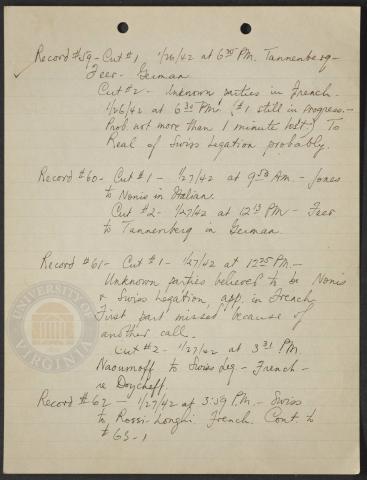 Record #59 - Cut #1 1/26/42 at 6 35 P.M. Tannenberg -
Feer - German
Cut #2 - Unknown parties in French -
1/26/42 at 6 30 P.M. (#1 still in progress. -
Prob. not more than 1 minute lost) To
Real of Swiss Legation probably.
Record #60 - Cut #1 - 1/27/42 at 9 53 A.M. - Jones
to Nonis in Italian.
Cut #2 - 1/27/42 at 12 13 P.M - Feer
to Tannenberg in German.
Record #61 - Cut #1 - 1/27/42 at 12 25 P.M. -
Unknown parties believed to be Nonis
& Swiss Legation, app. in French
First part missed because of
another call.
Cut #2 - 1/27/42 at 3 31 P.M.
Naoumoff to Swiss Leg - French -
re Doycheff.
Record #62 - 1/27/42 at 3:59 P.M. - Swiss
to Rossi-Longhi French. Cont. to
#63-1
UNIVERSITY OF
VIRGINIA